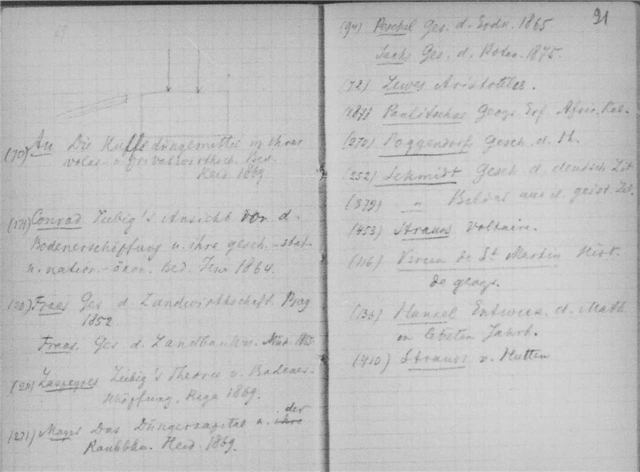 (70) Au Die Hülfsdüngemittel in ihrer
volks- u. privatwirthsch. Bed.
Heid 1869
(171) Conrad Liebig's Ansicht von d.
Bodenerschöpfung u. ihre gesch. - stat.
u. nation. - ökon. Bed. Jena 1864.
(20) Fraas Ges d. Landwirthschaft. Prag
1852
Fraas. Ges d. Landbau
Laspeyres Liebig's Theorie v. Bodener-
schöpfung. Riga 1869.
(271) Mayer Das Düngerkapital u. der
Raubbau. Heid. 1869.
91
(94) Peschel Ges. d. Erdk. 1865
Sachs Ges. d. Botan. 1875.
(72) Lewes Aristoteles.
Paulitschke Geogr. Erf. Afric.
(272) Poggendorf Gesch. d. Ph.
(252) Schmidt Gesch. d. deutsch. Lit
(379) " Bilder aus d. geist. Leb.
(453) Strauss Voltaire.
(116) Vivien de St Martin Hist.
de geogr.
(136) Hankel Entwick. d. Math.
in letzten Jahrh.
(410) Strauss v. Hutten